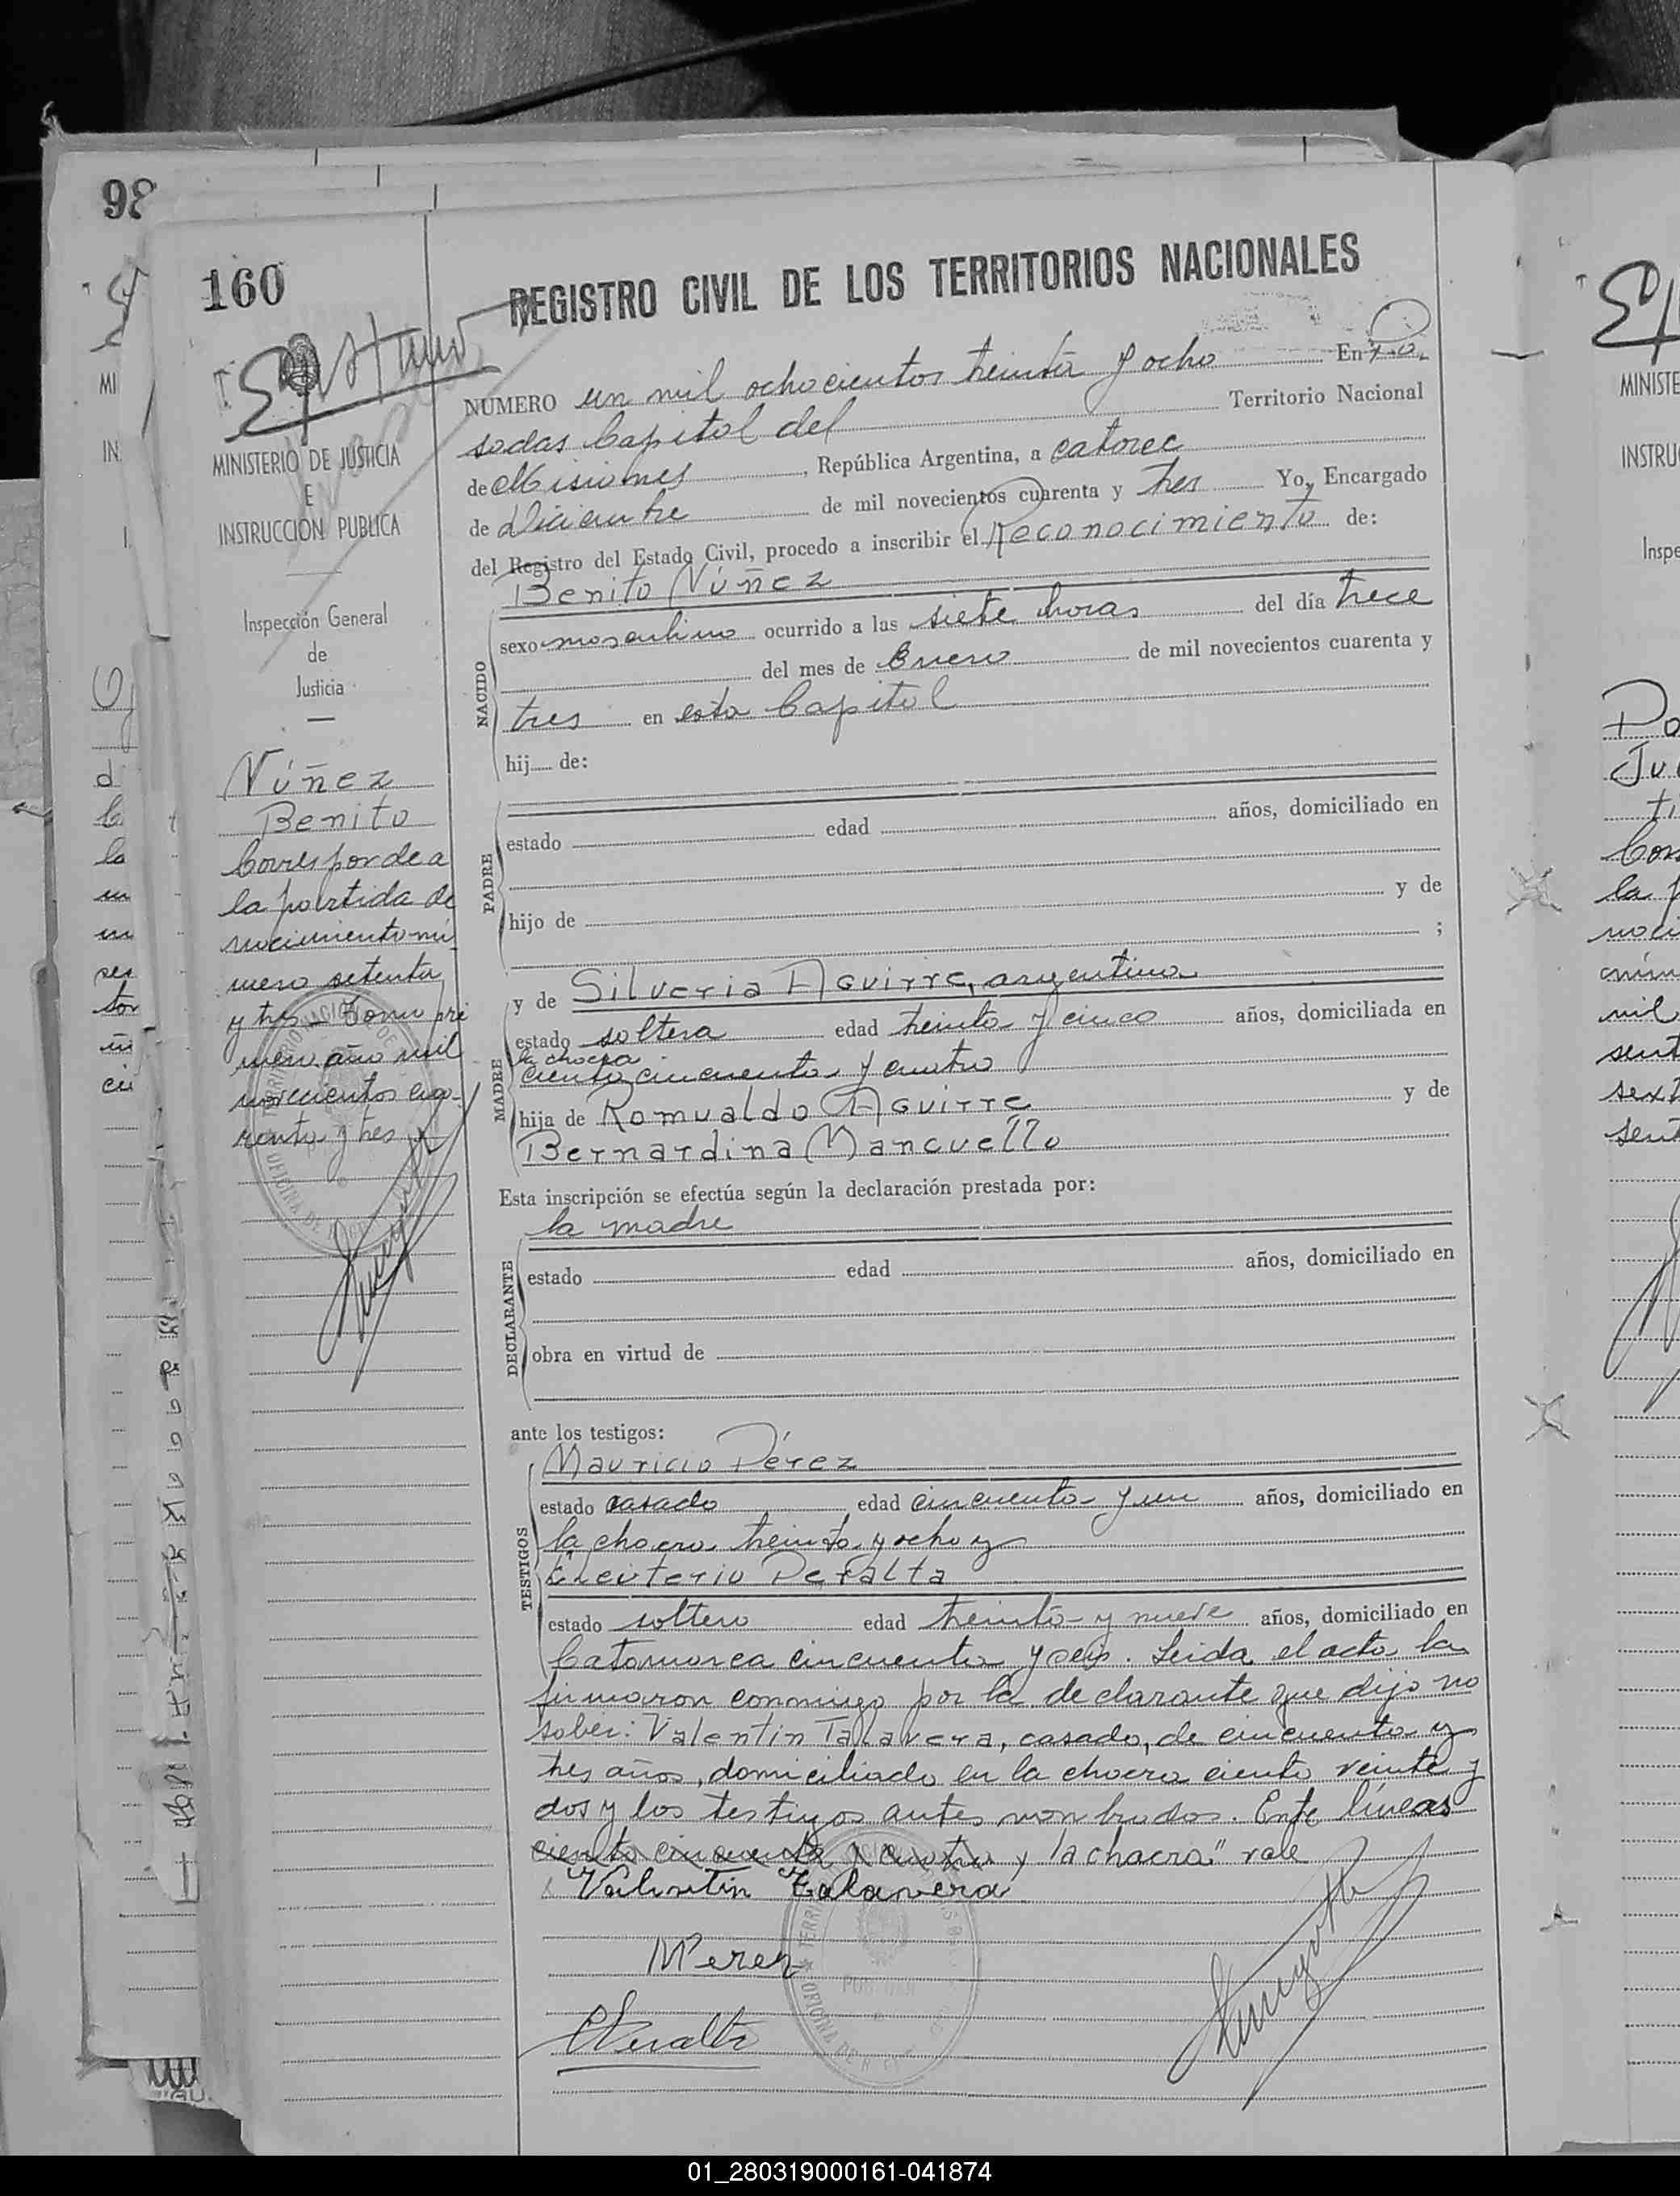 98
160
REGISTRO CIVIL DE LOS TERRITORIOS NACIONALES
NUMERO un mil ochocientos treinta y ocho En Po
sadas Capital del Territorio Nacional
de Misiones, República Argentina, a catorce
de Diciembre de mil novecientos cuarenta y tres Yo, Encargado
del Registro del Estado Civil, procedo a inscribir el Reconocimiento de:
MINISTERIO DE JUSTICIA
E
INSTRUCCIÓN PUBLICA
Inspección General
de
Justicia
Núñez
Benito
Corresponde a
la partida de
nacimiento nú
mero setenta
y tres - Tomo pri
mero año mil
novecientos cua-
renta y tres
NACIDO
Benito Núñez
sexo masculino ocurrido a las siete horas del día trece
del mes de Enero de mil novecientos cuarenta y
tres en esta Capital
hij de:
PADRE
estado edad años, domiciliado en
hijo de y de
;
MADRE
y de Silveria Aguirre, argentina
estado soltera edad treinta y cinco años, domiciliada en
la chacra
ciento cincuenta y cuatro
hija de Romualdo Aguirre y de
Bernardina Mancuello
Esta inscripción se efectúa según la declaración prestada por:
la madre
DECLARANTE
estado edad años, domiciliado en
obra en virtud de
ante los testigos:
TESTIGOS
Mauricio Pérez
estado casado edad cincuenta y un años, domiciliado en
la chacra treinta y ocho y
Eleuterio Peralta
estado soltero edad treinta y nueve años, domiciliado en
Catamarca cincuenta y seis. Leida el acta la
firmaron conmigo por la declarante que dijo no
saber: Valentin Talavera, casado, de cincuenta y
tres años, domiciliado en la chacra ciento veinte y
dos y los testigos antes nombrados. Entre líneas
ciento cincuenta y cuatro y "la chacra" vale
Valentin Talavera
MPerez
EPeralta
01_280319000161-041874